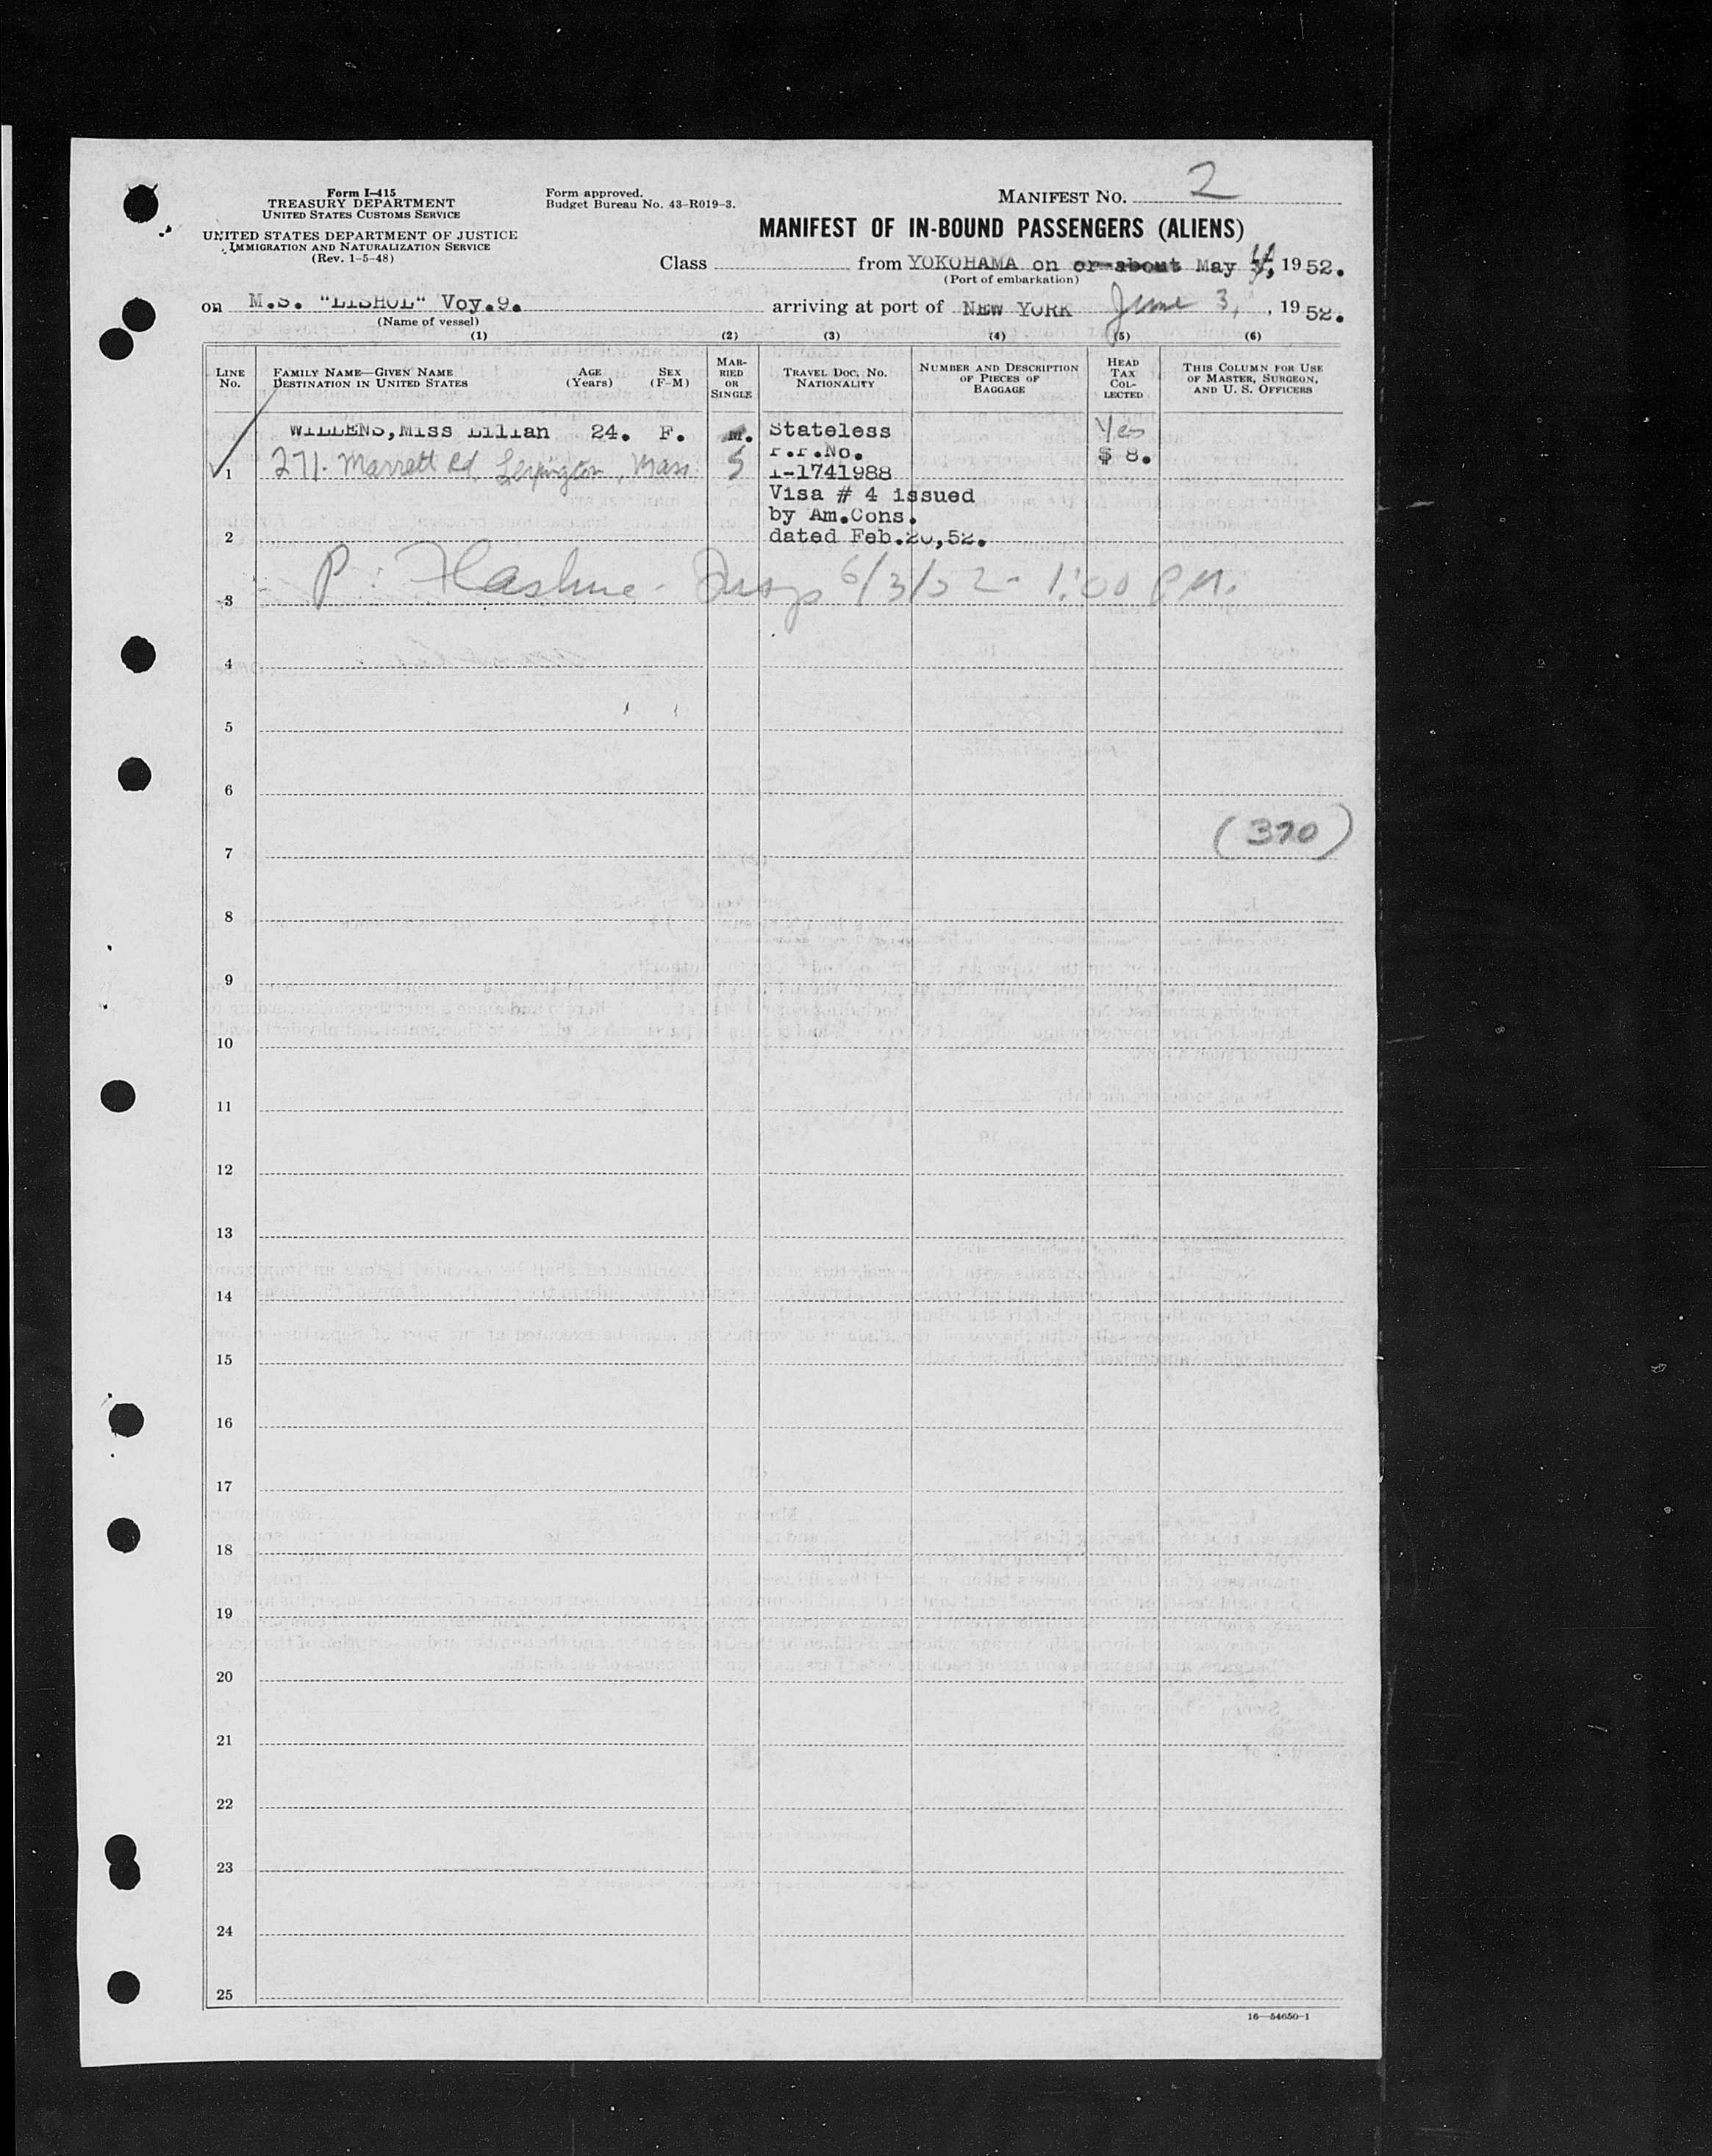 Form I-415
TREASURY DEPARTMENT
UNITED STATES CUSTOMS SERVICE
UNITED STATES DEPARTMENT OF JUSTICE
IMMIGRATION AND NATURALIZATION SERVICE
(Rev. 1-5-48)
Form approved.
Budget Bureau No. 43-R019-3.
MANIFEST NO. 2
MANIFEST OF IN-BOUND PASSENGERS (ALIENS)
Class from YOKOHAMA on or about May 4, 1952.
(Port of embarkation)
on M.S. "LISHOL" Voy.9. arriving at port of NEW YORK June 3, , 1952.
(Name of vessel)
(1) (2) (3) (4) (5) (6)
LINE No.
FAMILY NAME—GIVEN NAME
DESTINATION IN UNITED STATES
AGE (Years)
SEX (F-M)
MARRIED OR SINGLE
TRAVEL DOC. NO.
NATIONALITY
NUMBER AND DESCRIPTION OF PIECES OF BAGGAGE
HEAD TAX COLLECTED
THIS COLUMN FOR USE OF MASTER, SURGEON, AND U. S. OFFICERS
WILLENS, Miss Lilian 24. F. M. Stateless Yes
P.P.No. $ 8.
1 271 Marrett Rd, Lexington, Mass. S I-1741988
Visa # 4 issued
by Am.Cons.
2 dated Feb.20,52.
3 P: Insp 6/3/52 - 1:00 P.M.
4
5
6
(370)
7
8
9
10
11
12
13
14
15
16
17
18
19
20
21
22
23
24
25
16—54650-1